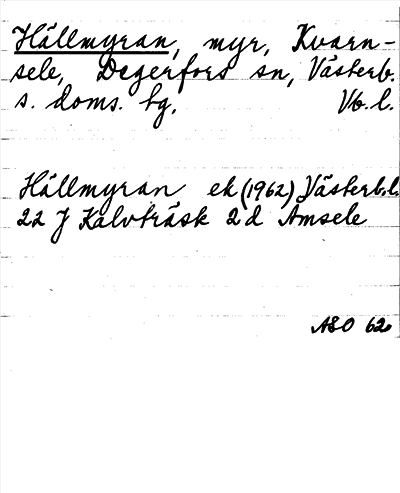 Hällmyran, myr, Kvarn-
sele, Degerfors sn, Västerb.
s. doms. tg. Vb. l.
Hällmyran ek (1962) Västerb.l.
22 J Kalvträsk 2 d Åmsele
ASO 62.